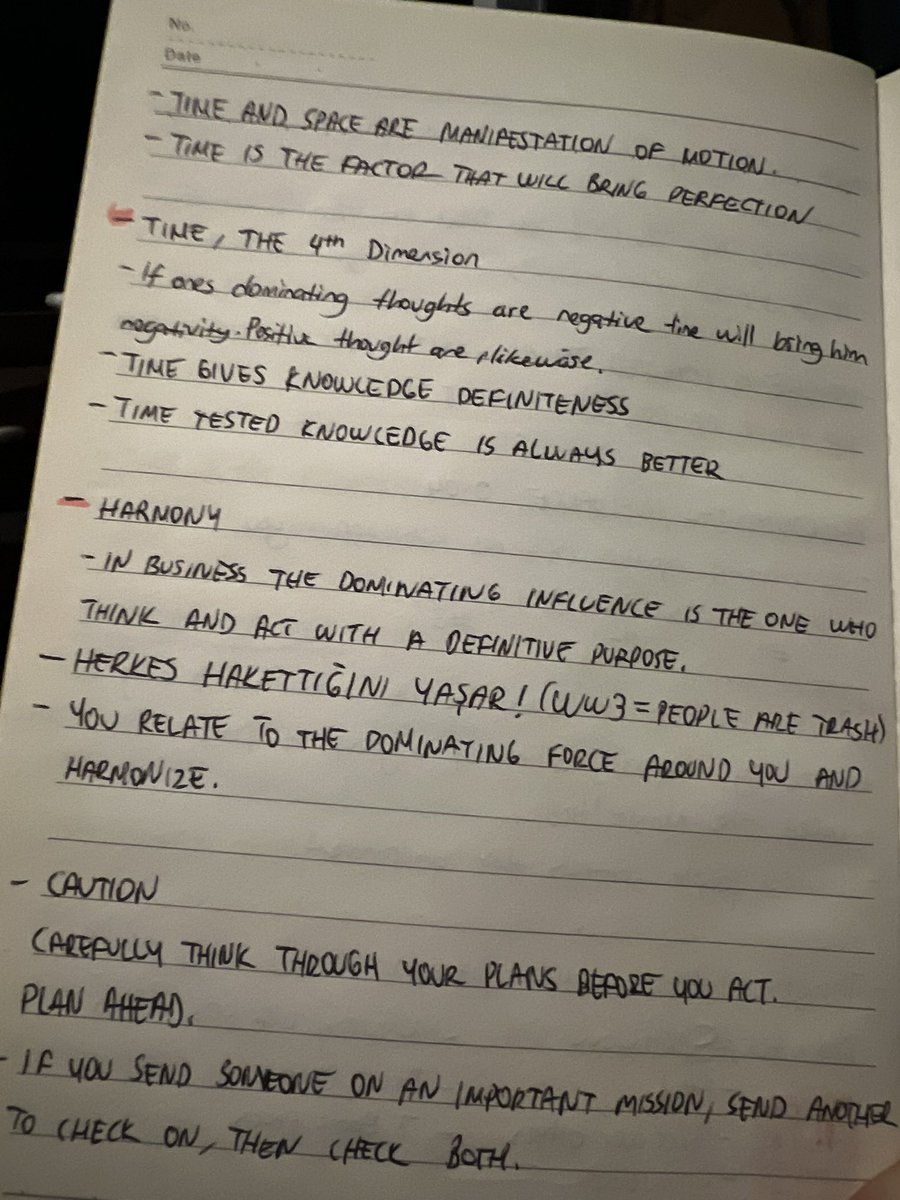 No.
Date
- TIME AND SPACE ARE MANIFESTATION OF MOTION.
- TIME IS THE FACTOR THAT WILL BRING PERFECTION
- TIME, THE 4th Dimension
- If ones dominating thoughts are negative time will bring him
negativity. Positive thought are likewise.
- TIME GIVES KNOWLEDGE DEFINITENESS
- TIME TESTED KNOWLEDGE IS ALWAYS BETTER
- HARMONY
- IN BUSINESS THE DOMINATING INFLUENCE IS THE ONE WHO
THINK AND ACT WITH A DEFINITIVE PURPOSE.
- HERKES HAKETTIĞINI YAŞAR! (WW3 = PEOPLE ARE TRASH)
- YOU RELATE TO THE DOMINATING FORCE AROUND YOU AND
HARMONIZE.
- CAUTION
CAREFULLY THINK THROUGH YOUR PLANS BEFORE YOU ACT.
PLAN AHEAD.
- IF YOU SEND SOMEONE ON AN IMPORTANT MISSION, SEND ANOTHER
TO CHECK ON, THEN CHECK BOTH.